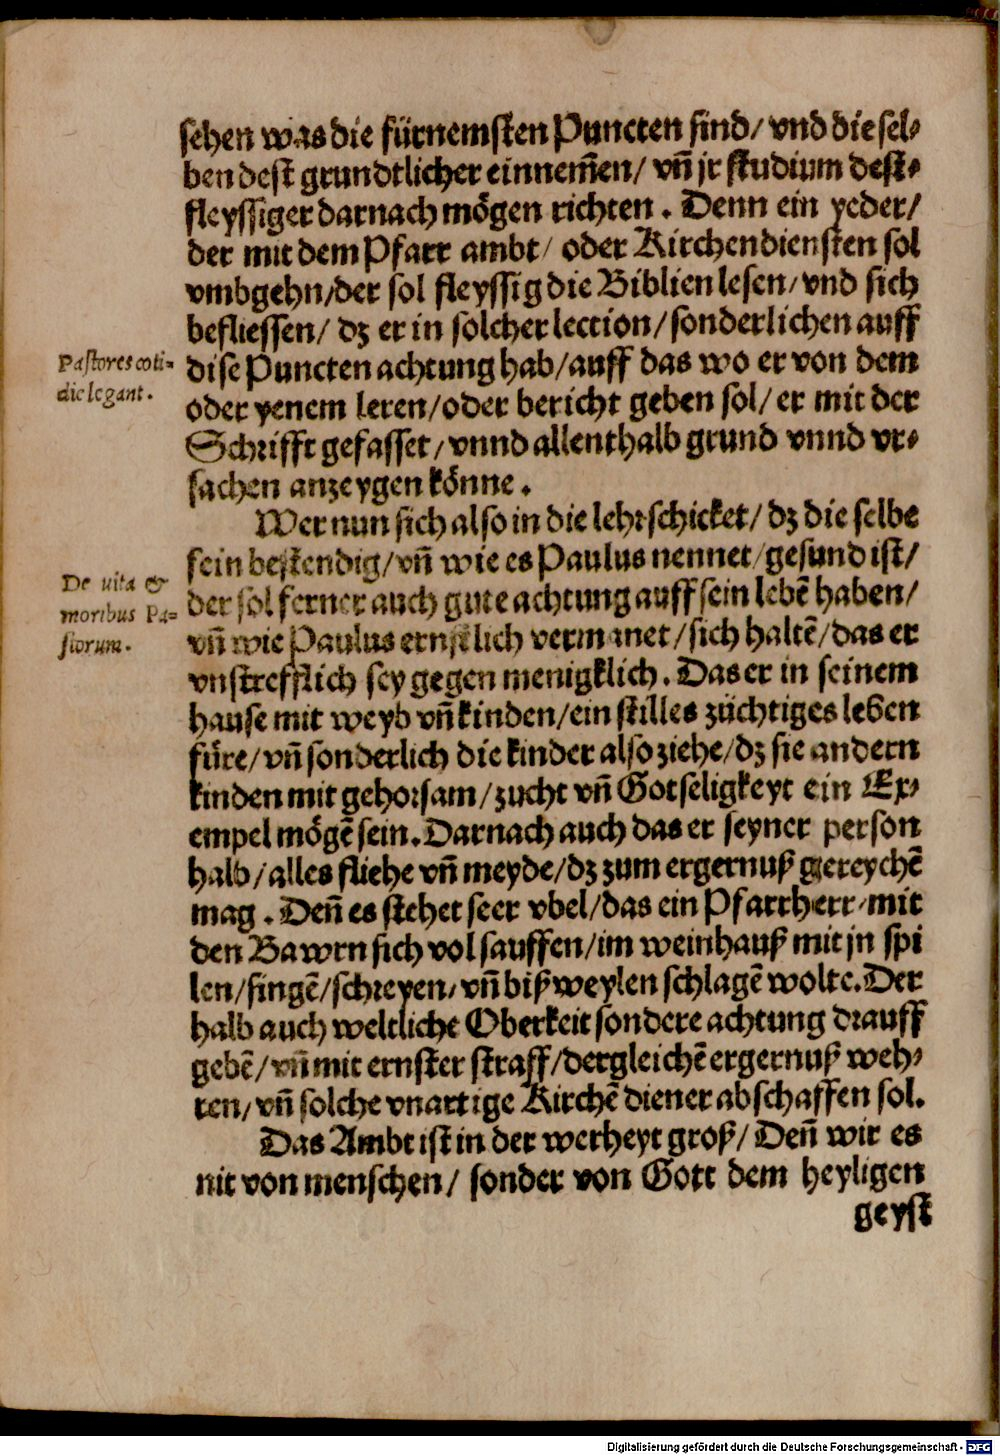 sehen was die fürnemsten Puncten sind/ vnd die sel-
ben dest grundtlicher einnem̃en/ vñ jr studium dest-
fleyssiger darnach mögen richten. Denn ein yeder/
der mit dem Pfarr ambt/ oder Kirchendiensten sol
vmbgehn/der sol fleyssig die Biblien lesen/vnd sich
befliessen/ dz er in solcher lection/sonderlichen auff
Pastores coti-
die legant.
dise Puncten achtung hab/auff das wo er von dem
oder yenem leren/oder bericht geben sol/ er mit der
Schrifft gefasset/vnnd allenthalb grund vnnd vr-
sachen anzeygen könne.
Wer nun sich also in die lehr schicket/ dz die selbe
De vita &
moribus Pa-
storum.
sein bestendig/vñ wie es Paulus nennet/gesund ist/
der sol ferner auch gute achtung auff sein lebẽ haben/
vñ wie Paulus ernstlich vermanet/sich haltẽ/das er
vnstrefflich sey gegen menigklich. Das er in seinem
hause mit weyb vñ kinden/ein stilles züchtiges leben
füre/vñ sonderlich die kinder also ziehe/dz sie andern
kinden mit gehorsam/zucht vñ Gotseligkeyt ein Ex-
empel mögẽ sein. Darnach auch das er seyner person
halb/alles fliehe vñ meyde/dz zum ergernuß gereychẽ
mag. Deñ es stehet seer vbel/das ein Pfarrherr/mit
den Bawrn sich vol sauffen/im weinhauß mit jn spi
len/singẽ/schreyen/vñ bißweylen schlagẽ wolte. Der
halb auch weltliche Oberkeit sondere achtung drauff
gebẽ/vñ mit ernster straff/dergleichẽ ergernuß weh-
ren/vñ solche vnartige Kirchẽ diener abschaffen sol.
Das Ambt ist in der werheyt groß/ Deñ wir es
nit von menschen/ sonder von Gott dem heyligen
geyst
Digitalisierung gefördert durch die Deutsche Forschungsgemeinschaft - DFG